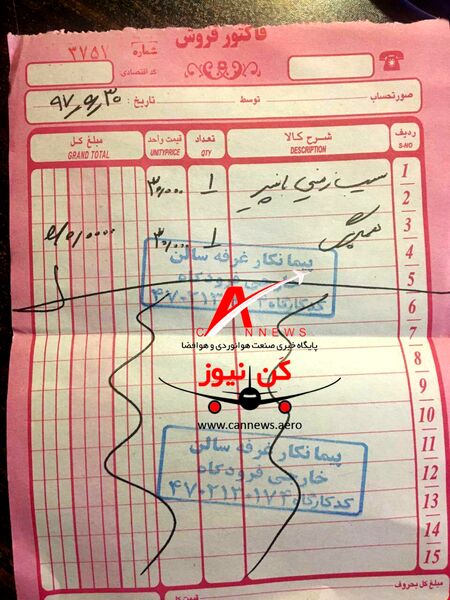 فاکتور فروش
شماره ۳۷۵۱
کد اقتصادی:
صورتحساب توسط تاریخ: ۹۷،۹،۳۰
ردیف شرح کالا تعداد قیمت واحد مبلغ کل
S-NO DESCRIPTION QTY UNITPRICE GRAND TOTAL
1 سیب زمینی با پنیر ۱ ۳۰،۰۰۰
2
3 ۱ ۳۰،۰۰۰
4
پیمانکار غرفه سالن
5
خارجی فرودگاه
6
CANNEWS
7
پایگاه خبری صنعت هوانوردی و هوافضا
8
کن نیوز
9
10
www.cannews.aero
11
پیمانکار غرفه سالن
12
خارجی فرودگاه
13
کدکارگاه ۴۷۰۲۱۳۰۱۷۴
14
15
مبلغ کل بحروف
قیمت کل